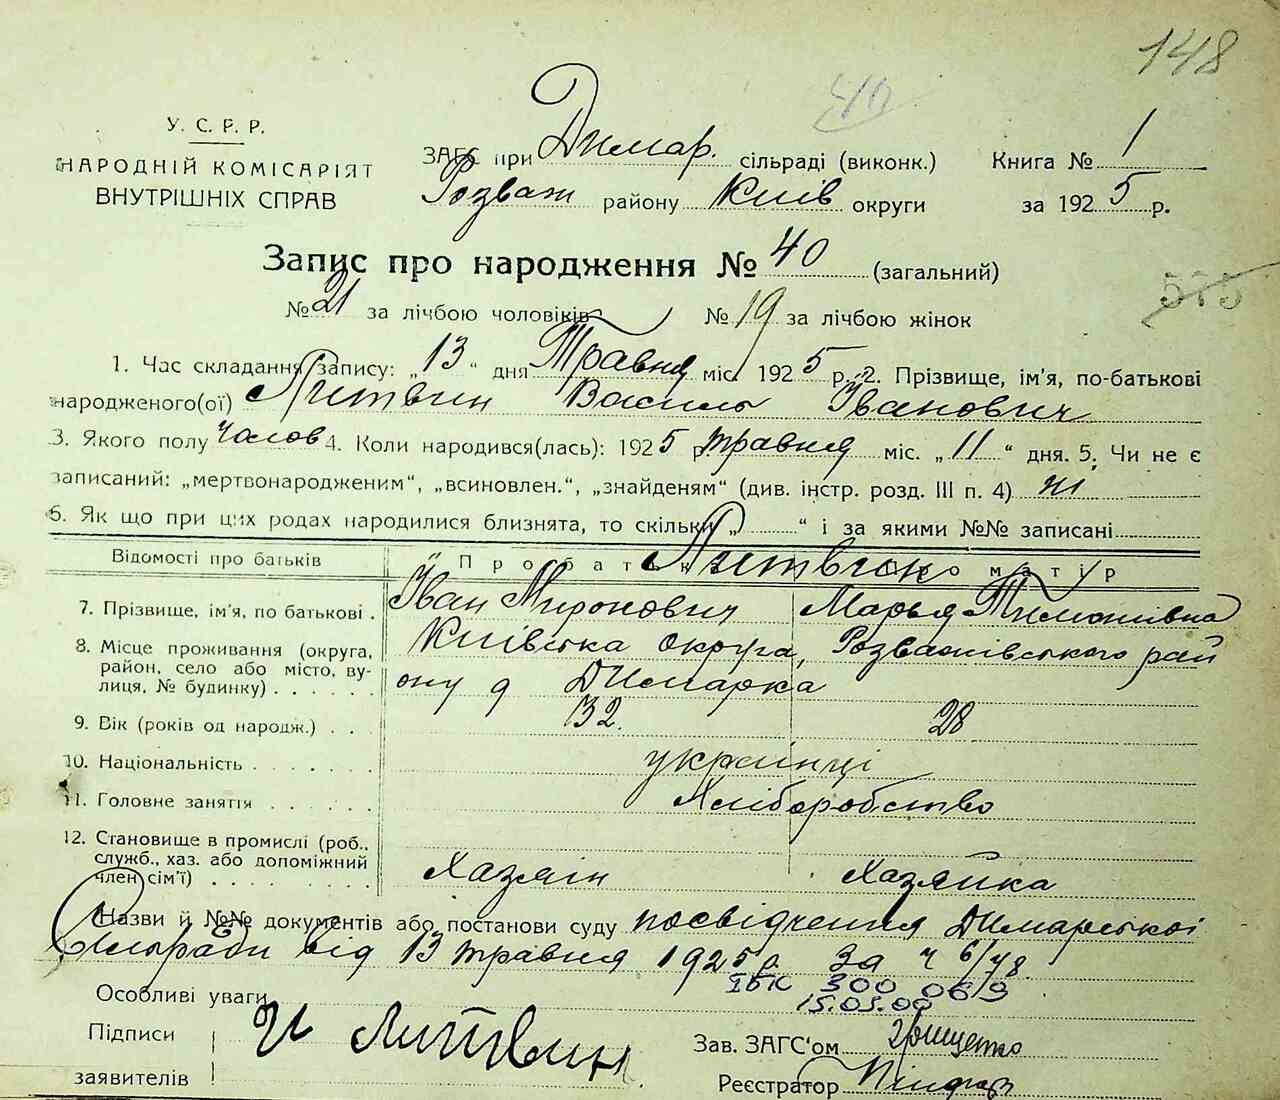 148
40
У. С. Р. Р.
НАРОДНІЙ КОМІСАРІЯТ
ВНУТРІШНІХ СПРАВ
ЗАГС при Димар. сільраді (виконк.) Книга № 1
Розваж району Київ округи за 1925 р.
Запис про народження № 40 (загальний)
575
№ 21 за лічбою чоловіків № 19 за лічбою жінок
1. Час складання запису: „13“ дня Травня міс. 1925 р. 2. Прізвище, ім'я, по-батькові
народженого(ої) Литвин Василь Іванович
3. Якого полу Чолов 4. Коли народився(лась): 1925 р травня міс. „11“ дня. 5. Чи не є
записаний: „мертвонародженим“, „всиновлен.“, „знайденям“ (див. інстр. розд. III п. 4) ні
6. Як що при цих родах народилися близнята, то скільки „ “ і за якими №№ записані
Відомості про батьків Про батька Про матір
Литвин
7. Прізвище, ім'я, по батькові . Іван Миронович Марья Тимошівна
8. Місце проживання (округа, Київська округа, Розважівського рай
район, село або місто, ву- ону д Димарка
лиця, № будинку)
9. Вік (років од народж.) 32. 28
10. Національність українці
11. Головне заняття Хліборобство
12. Становище в промислі (роб.,
служб., хаз. або допоміжний
член сім'ї) Хазяін Хазяйка
Назви й №№ документів або постанови суду посвідчення Димарської
Сільради від 13 травня 1925 р. За ч 6/48
ІБК 300 069
Особливі уваги 15.05.00
Підписи И Литвин Зав. ЗАГС'ом Грищенко
заявителів Реєстратор